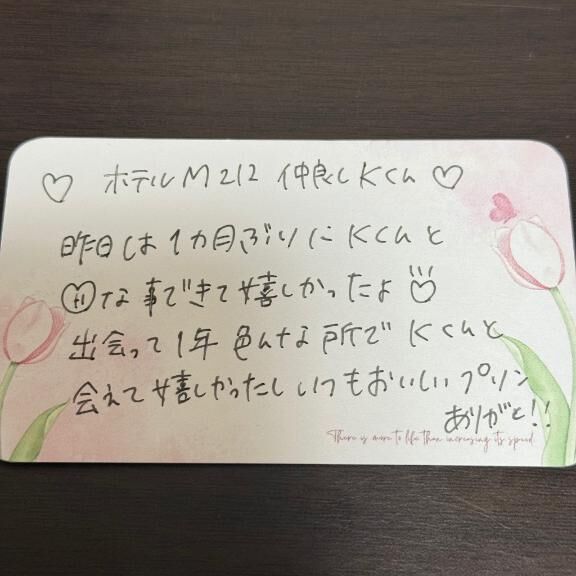 ♡ ホテルM212 仲良しKくん ♡
昨日は1カ月ぶりにKくんと
な事できて嬉しかったよ
出会って1年 色んな所でKくんと
会えて嬉しかったし いつもおいしいプリン
ありがと!!
There is more to life than increasing its speed